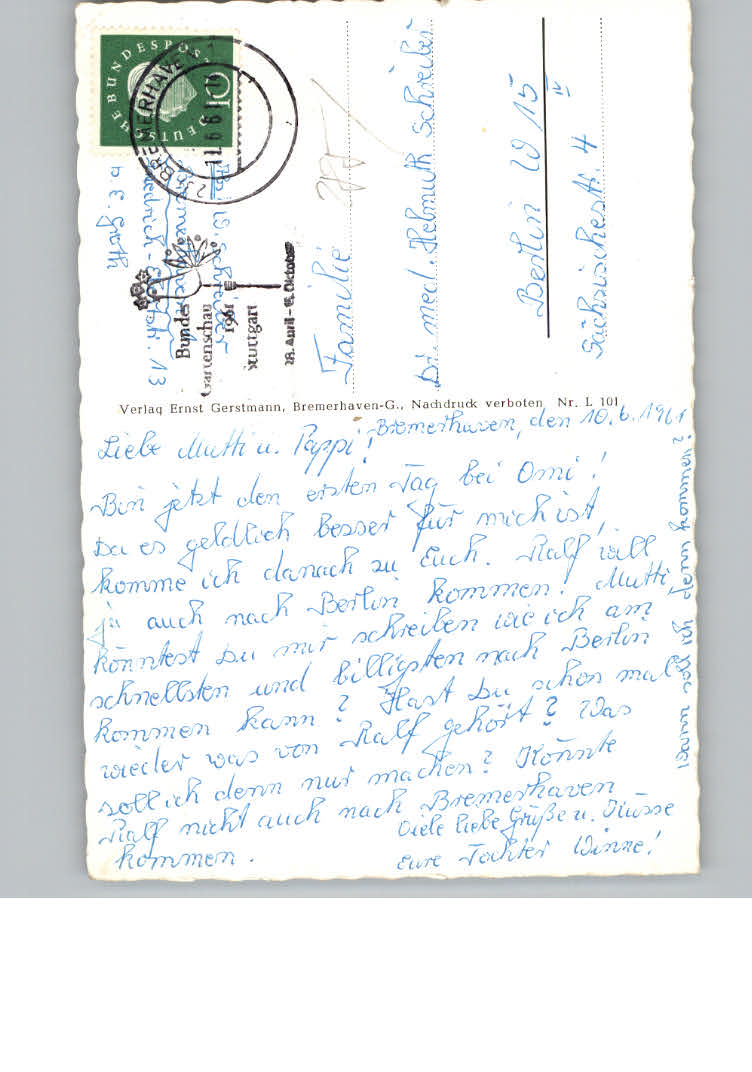 Bremerhaven, den 10.6.1961
Liebe Mutti u. Pappi!
Bin jetzt den ersten Tag bei Omi!
Da es geldlich besser für mich ist,
komme ich danach zu Euch. Ralf will
ja auch nach Berlin kommen! Mutti,
könntest Du mir schreiben wie ich am
schnellsten und billigsten nach Berlin
kommen kann? Hast Du schon mal
wieder was von Ralf gehört? Was
soll ich denn nur machen? Könnte
Ralf nicht auch nach Bremerhaven
kommen.
Viele liebe Grüße u. Küsse
Eure Tochter Winne!
Wann soll ich denn kommen?
Verlag Ernst Gerstmann, Bremerhaven-G., Nachdruck verboten Nr. L 101
Familie
Dr. med. Helmuth Schreiber
Berlin W 15
IV
Sächsischestr. 4
Abs. W. Schreiber
Bremerhaven
13
b. E.
DEUTSCHE BUNDESPOST
10
BREMERHAVEN 1
11.6.61
Bundes
Gartenschau
1961
Stuttgart
28. April - 15. Oktober